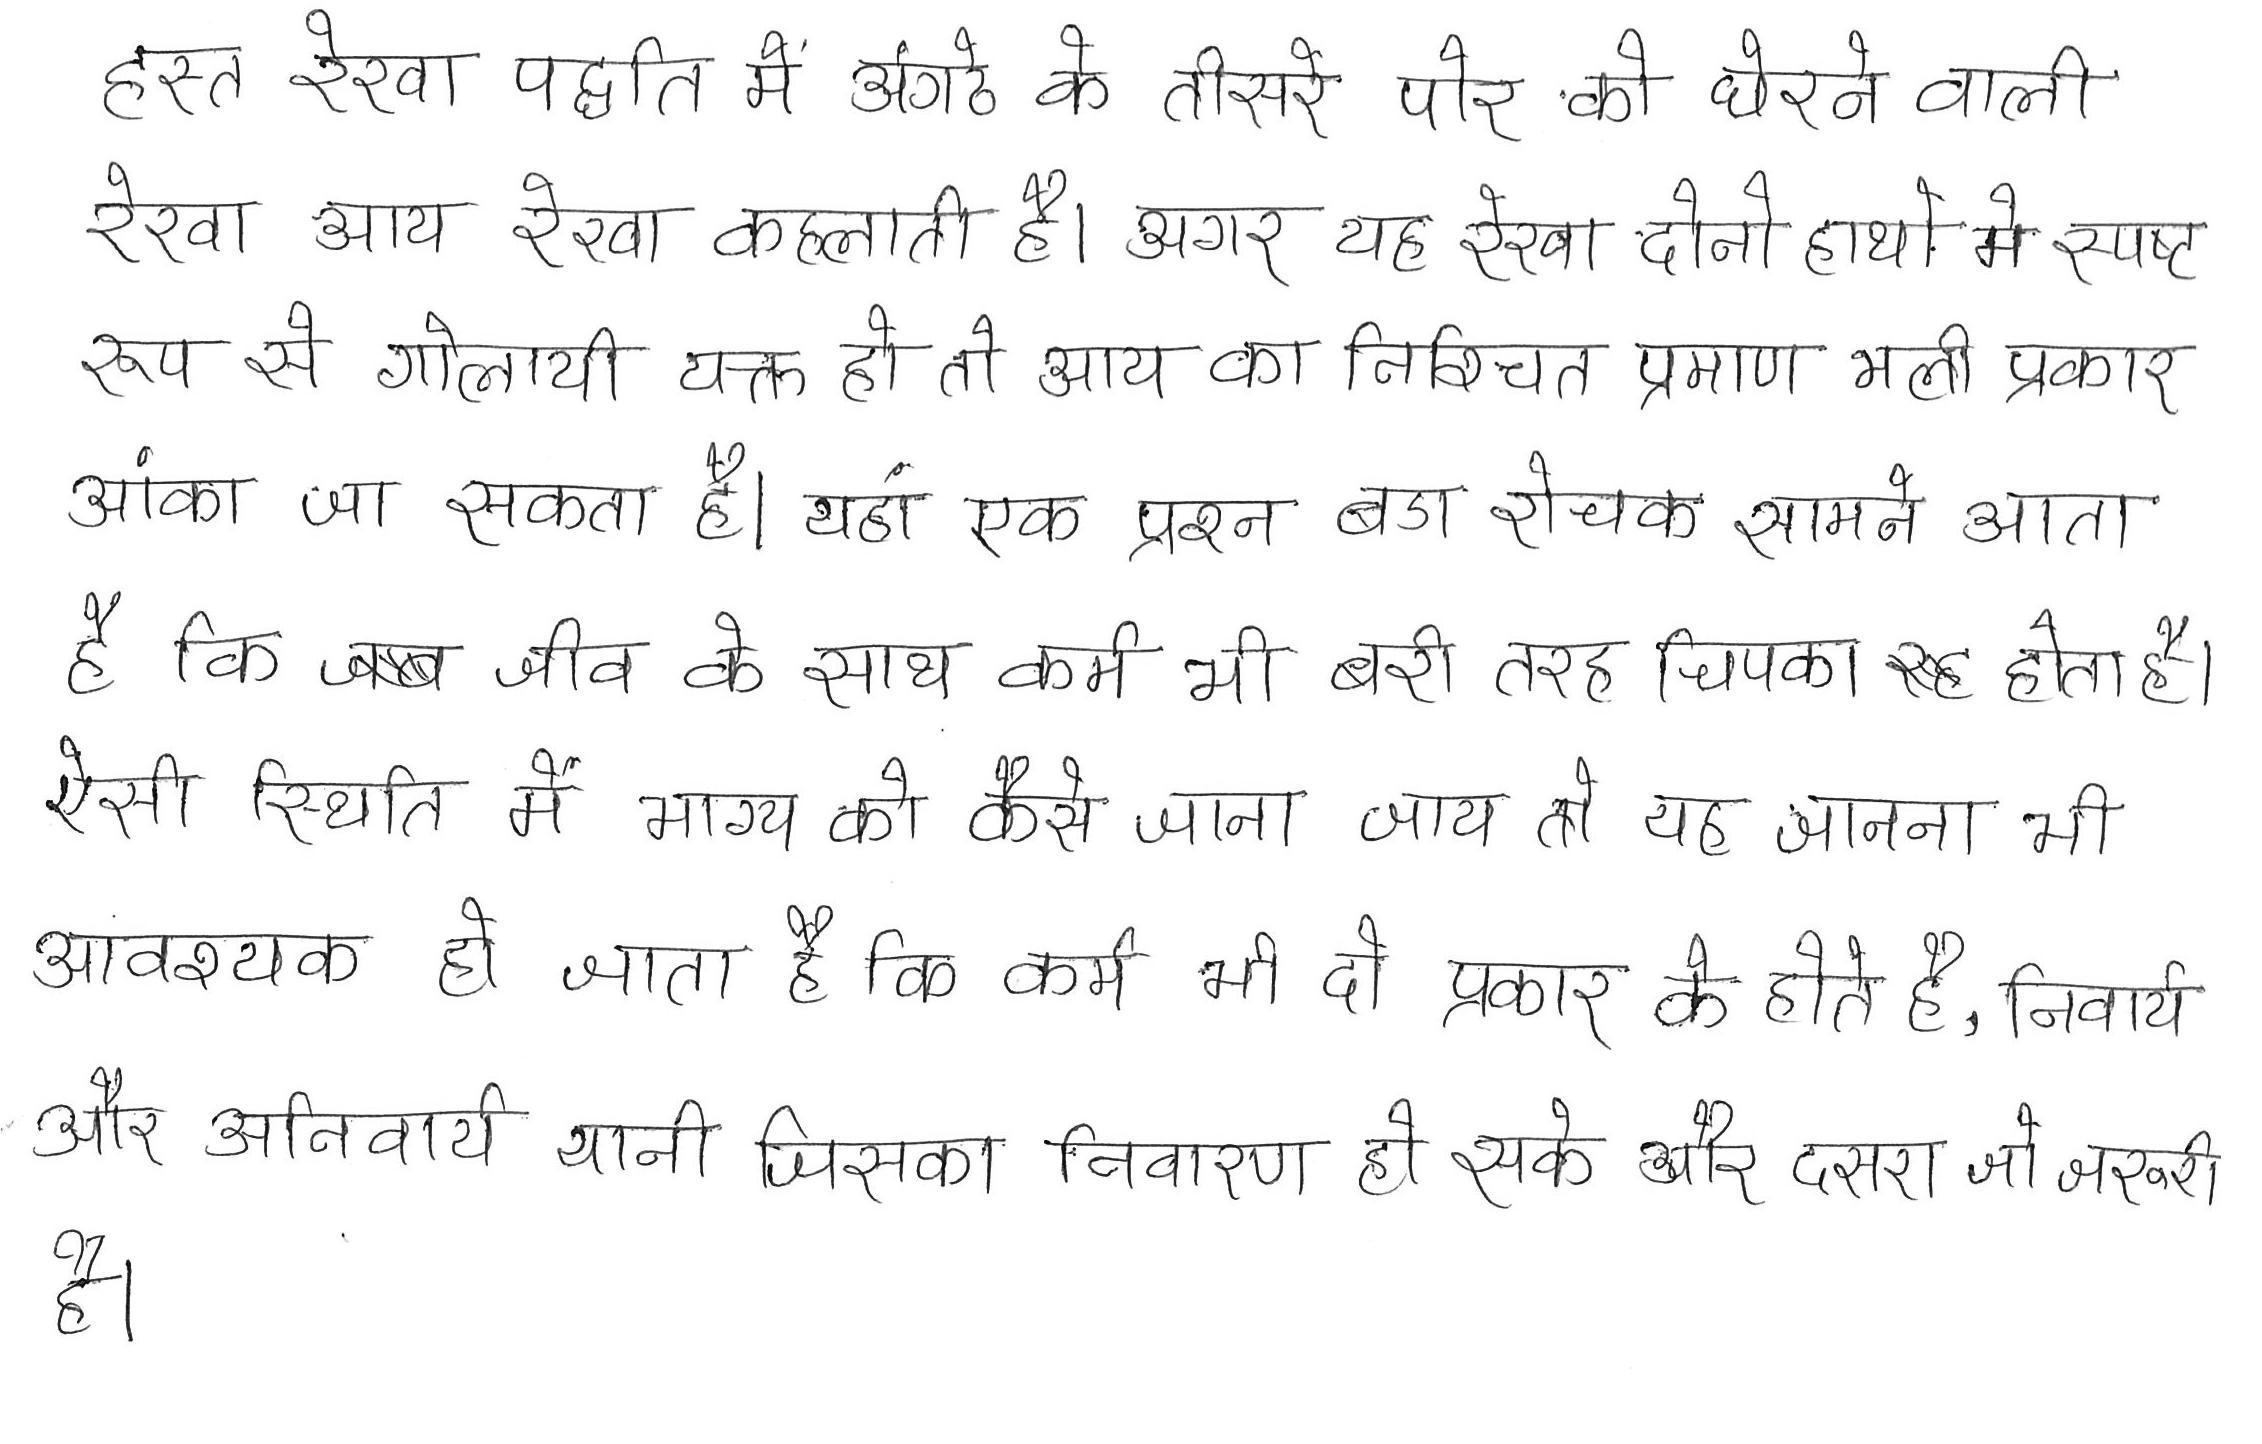 हस्त रेखा पद्धति में अंगठे के तीसरे पोर को घेरने वाली
रेखा आय रेखा कहलाती है। अगर यह रेखा दोनो हाथों मे स्पष्ट
रूप से गोलायी यक्त हो तो आय का निश्चित प्रमाण भली प्रकार
आंका जा सकता है। यहां एक प्रश्न बडा रोचक सामने आता
है कि जब जीव के साथ कर्म भी बरी तरह चिपका होता है।
ऐसी स्थिति में भाग्य को कैसे जाना जाय तो यह जानना भी
आवश्यक हो जाता है कि कर्म भी दो प्रकार के होते है, निवार्य
और अनिवार्य यानी जिसका निवारण हो सके और दसरा जो जरूरी
है।